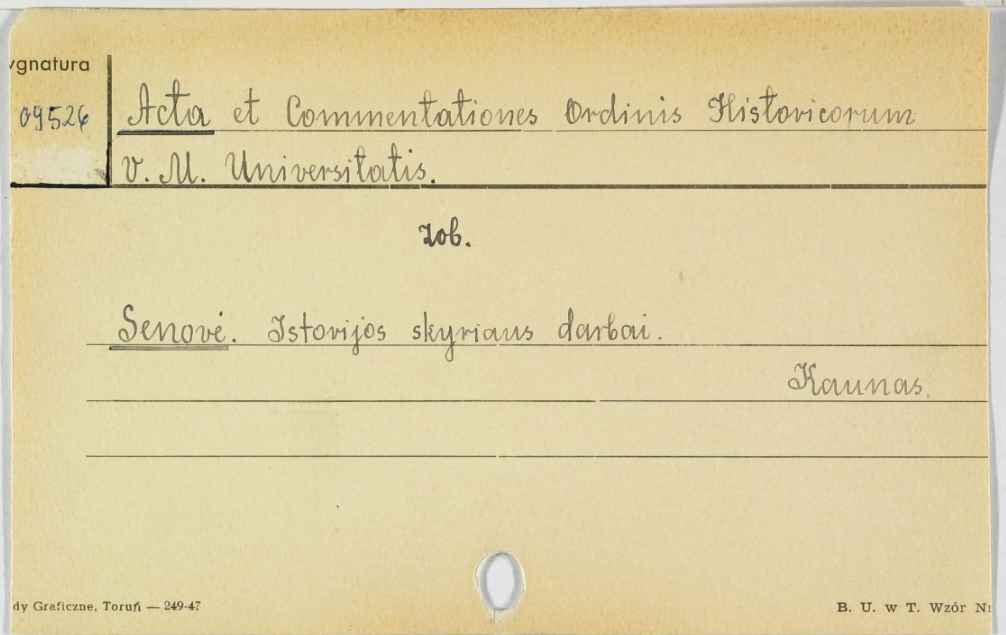 ygnatura
09526
Acta et Commentationes Ordinis Historicorum
V. M. Universitatis.
zob.
Senovė. Istorijos skyriaus darbai.
Kaunas.
dy Graficzne, Toruń — 249-47
B. U. w T. Wzór Nr